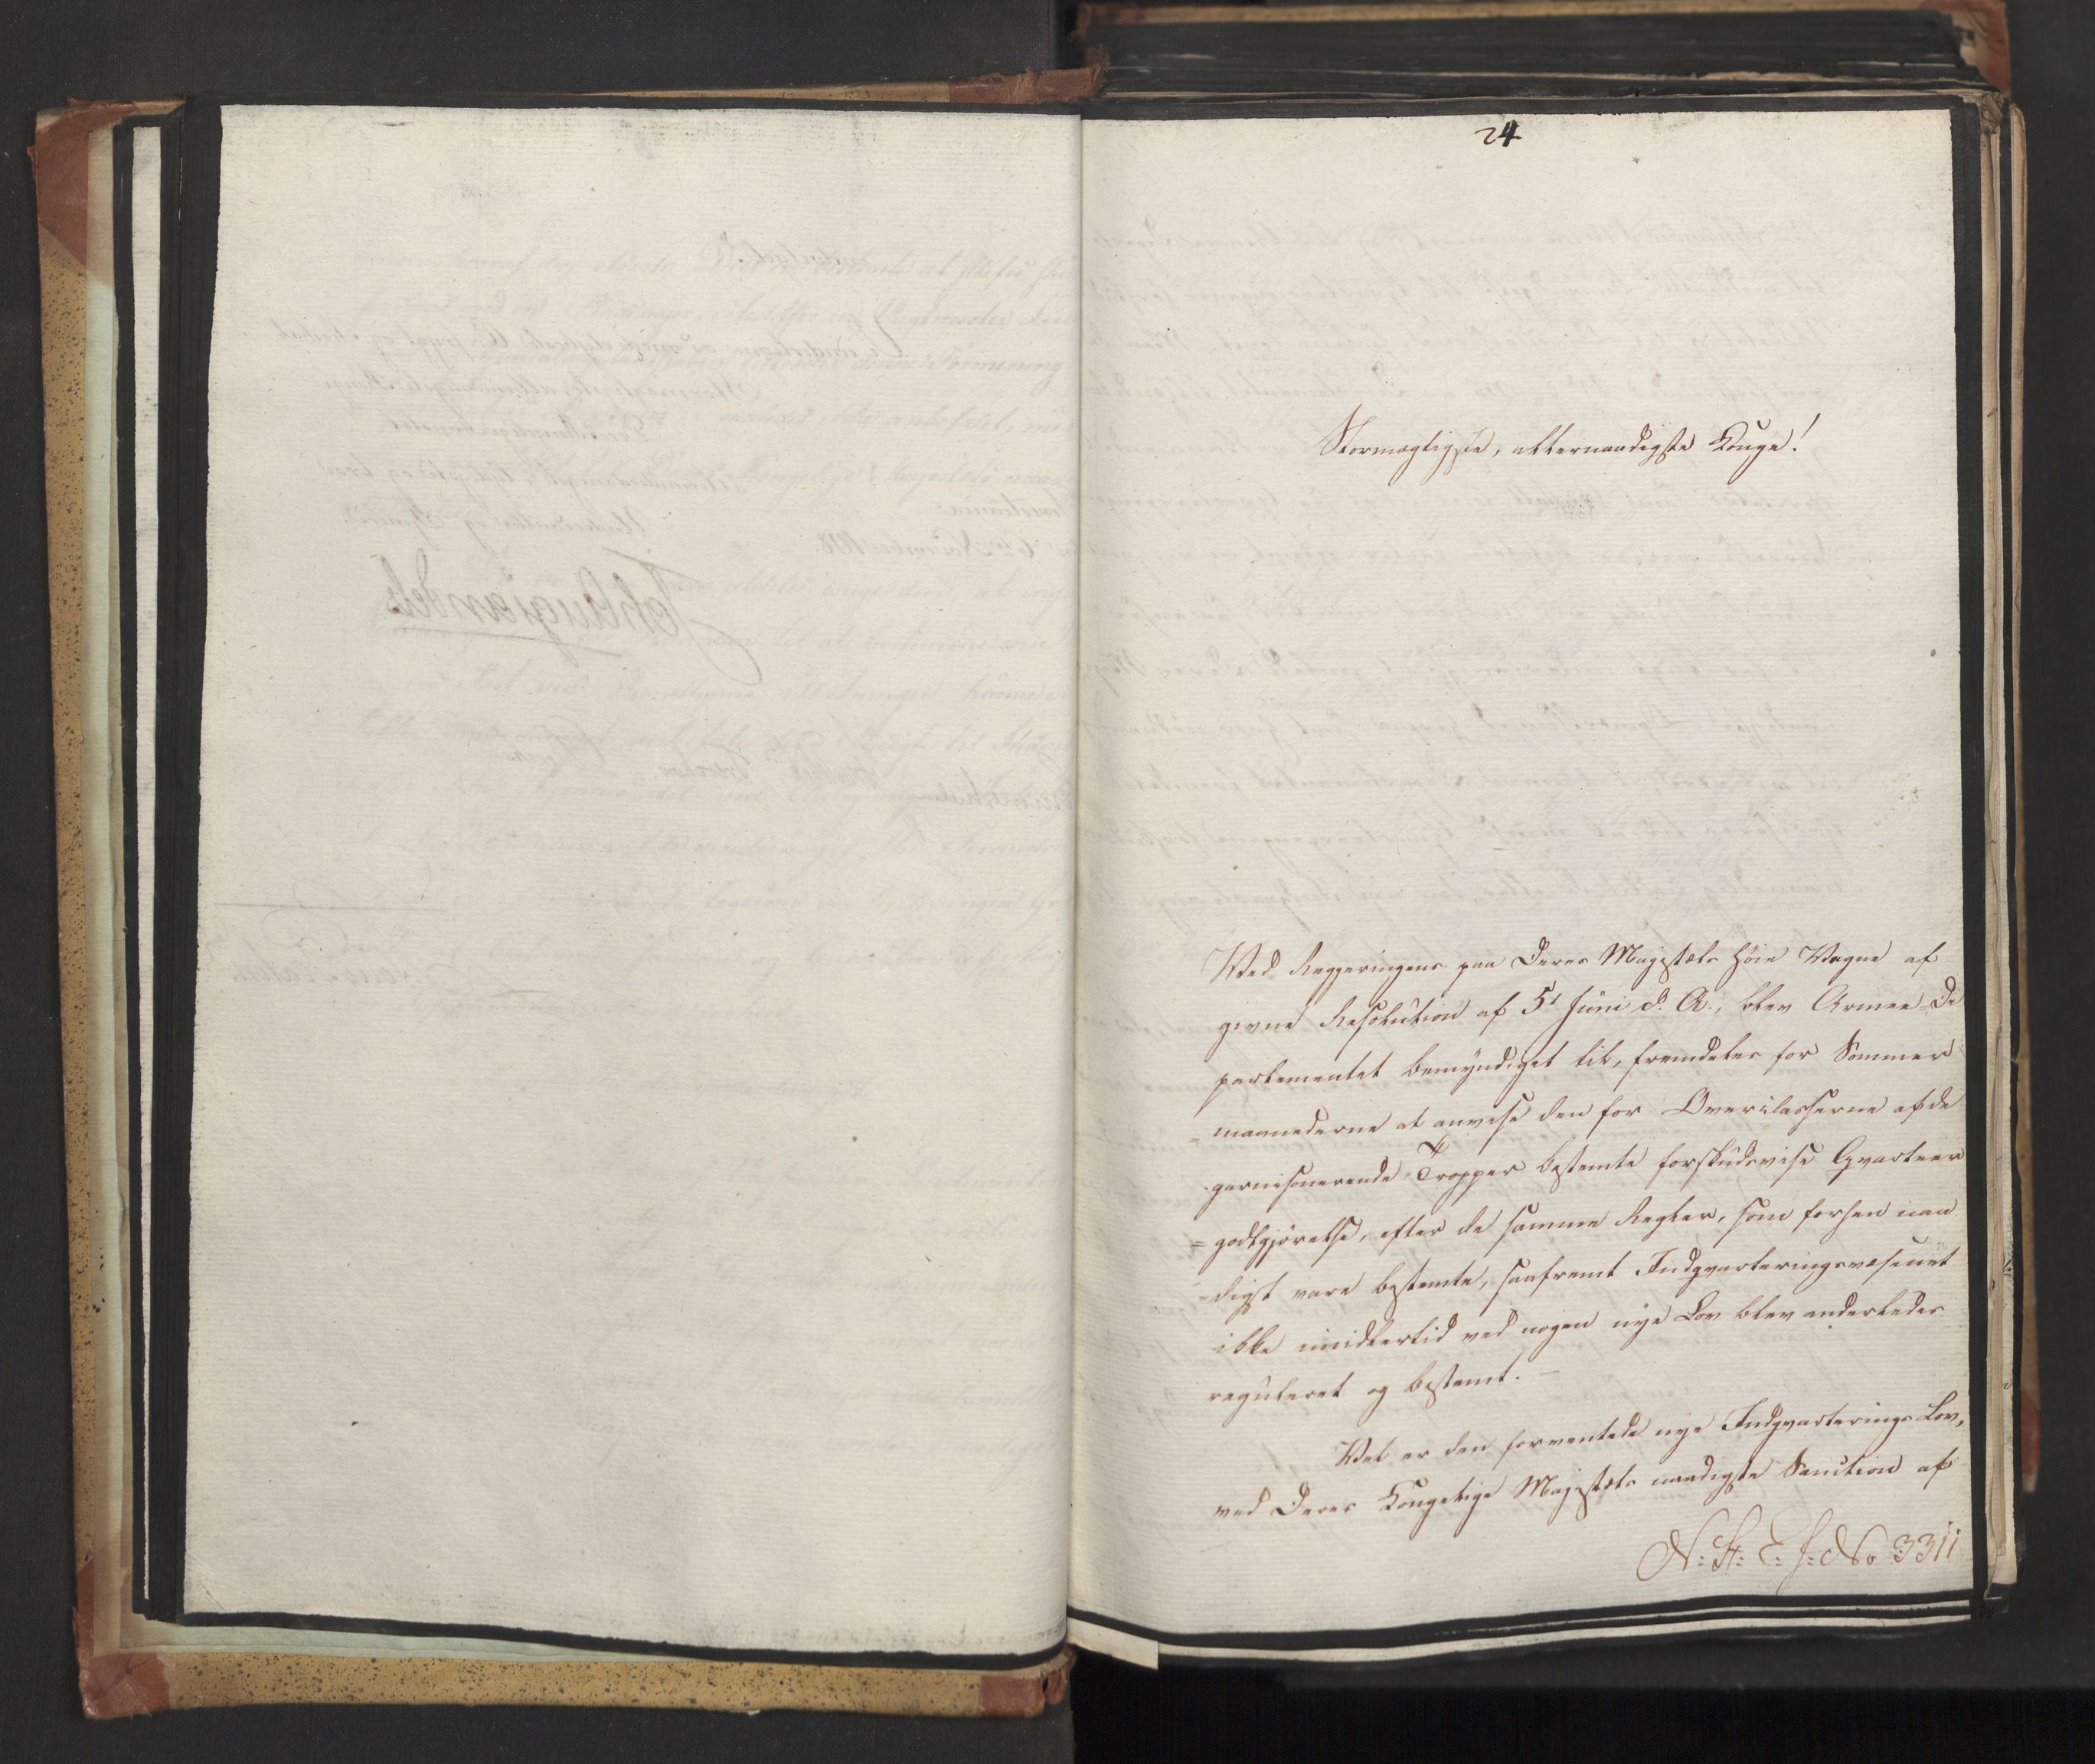 24
Stormægtigste, allernaadigste Konge!
Ved Regjeringens paa Deres Majestæts høie Vegne af
givne Resolution af 5t Juni d. A., blev Armee-De
partementet bemyndiget til, fremdeles for Sommer
=maanederne at anvise den for Overclasserne af de
garnisonerende Tropper bestemte forskudsvise Qvarteer
=godtgjørelse, efter de samme Regler, som forhen naa
-digst vare bestemte, saafremt Indqvarteringsvæsenet
ikke imidlertid ved nogen nye Lov blev anderledes
reguleret og bestemt. –
Vel er den forventede nye Indqvarterings Lov,
ved Deres Kongelige Majestæts naadigste Sanction af
N: St: E: J: No 3311